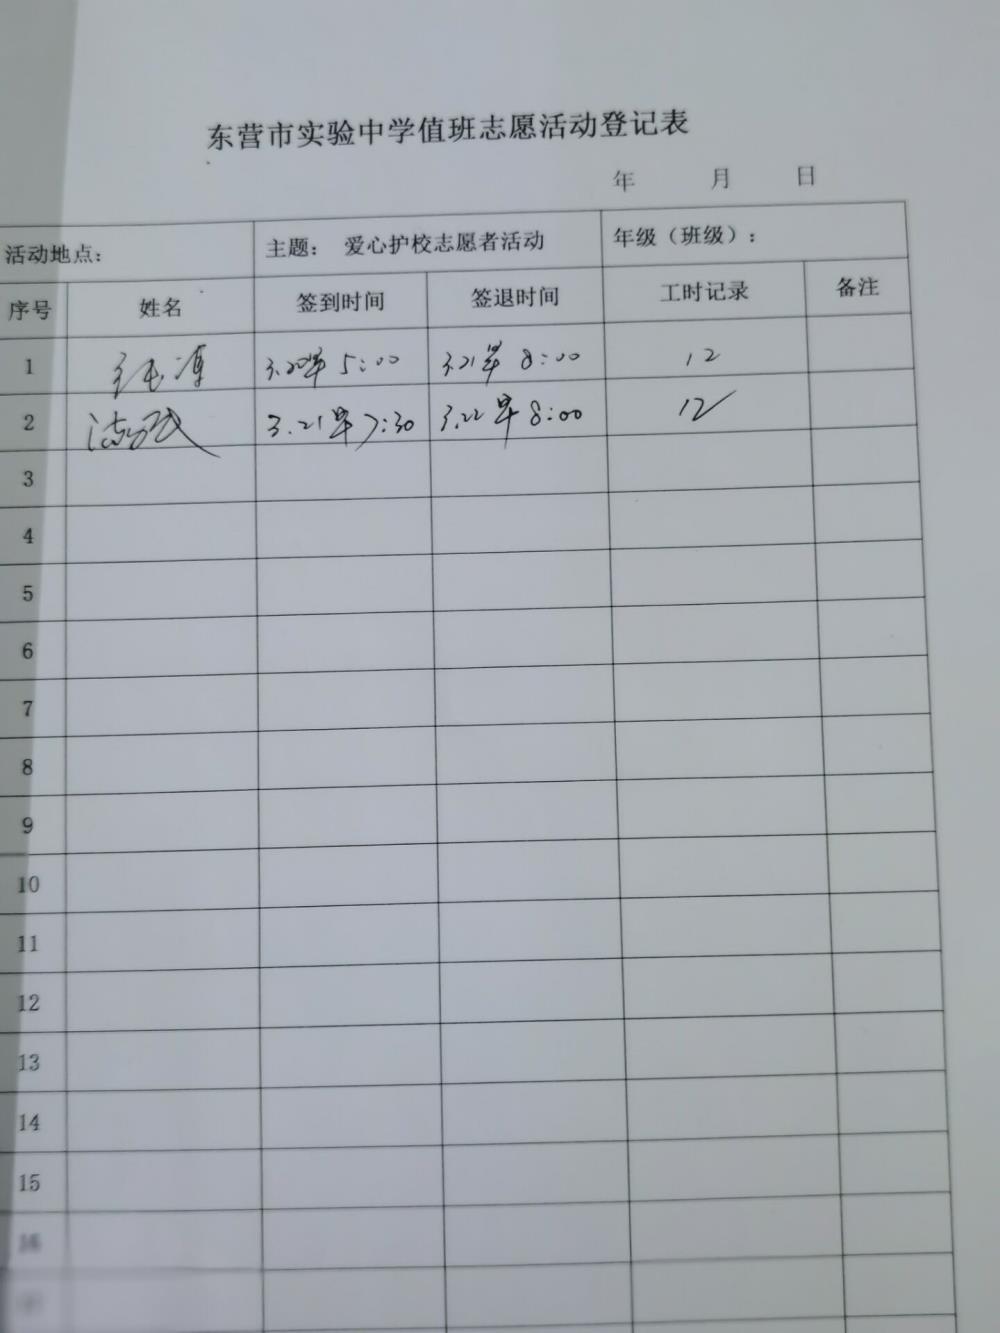 东营市实验中学值班志愿活动登记表
年 月 日
活动地点： 主题： 爱心护校志愿者活动 年级（班级）：
序号 姓名 签到时间 签退时间 工时记录 备注
1 3.20早 5:00 3.21早 8:00 12
2 3.21早 7:30 3.22早 8:00 12
3
4
5
6
7
8
9
10
11
12
13
14
15
16